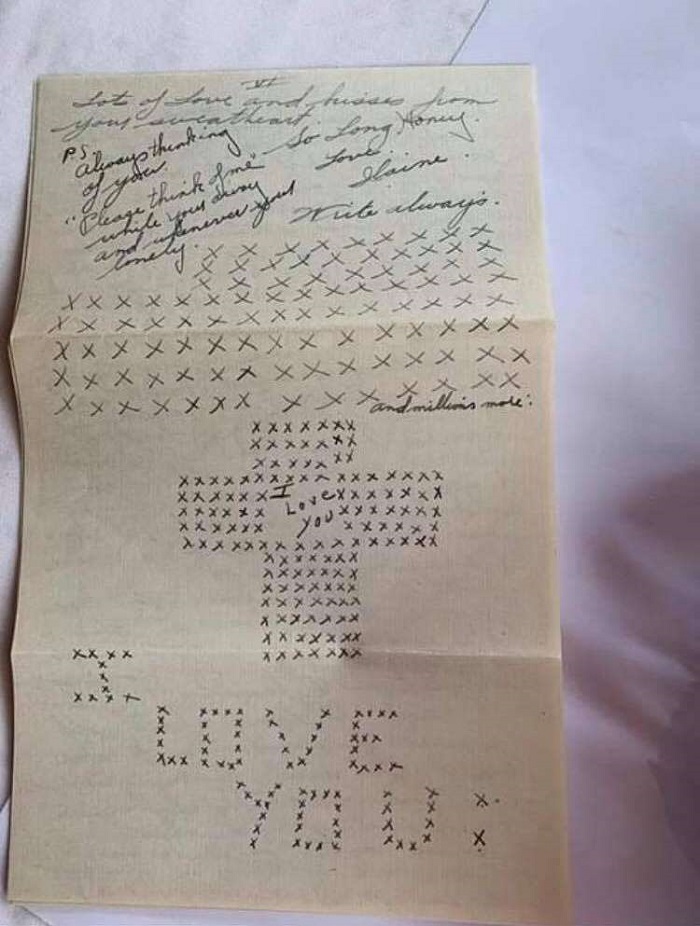 VI
Lots of Love and kisses from
your sweetheart.
So Long Honey.
Love
Elaine.
Write always.
PS
Always thinking
of you.
"Please think of me"
while your away
and whenever your
lonely.
X X X X X X X X
X X X X X X X X
X X X X X X X X
X X X X X X X X X X X X X X X
X X X X X X X X X X X X X X X
X X X X X X X X X X X X X X X
X X X X X X X X X X X X X X X
X X X X X X X X X X X X X
and millions more:
I
Love
you
I
LOVE
YOU :